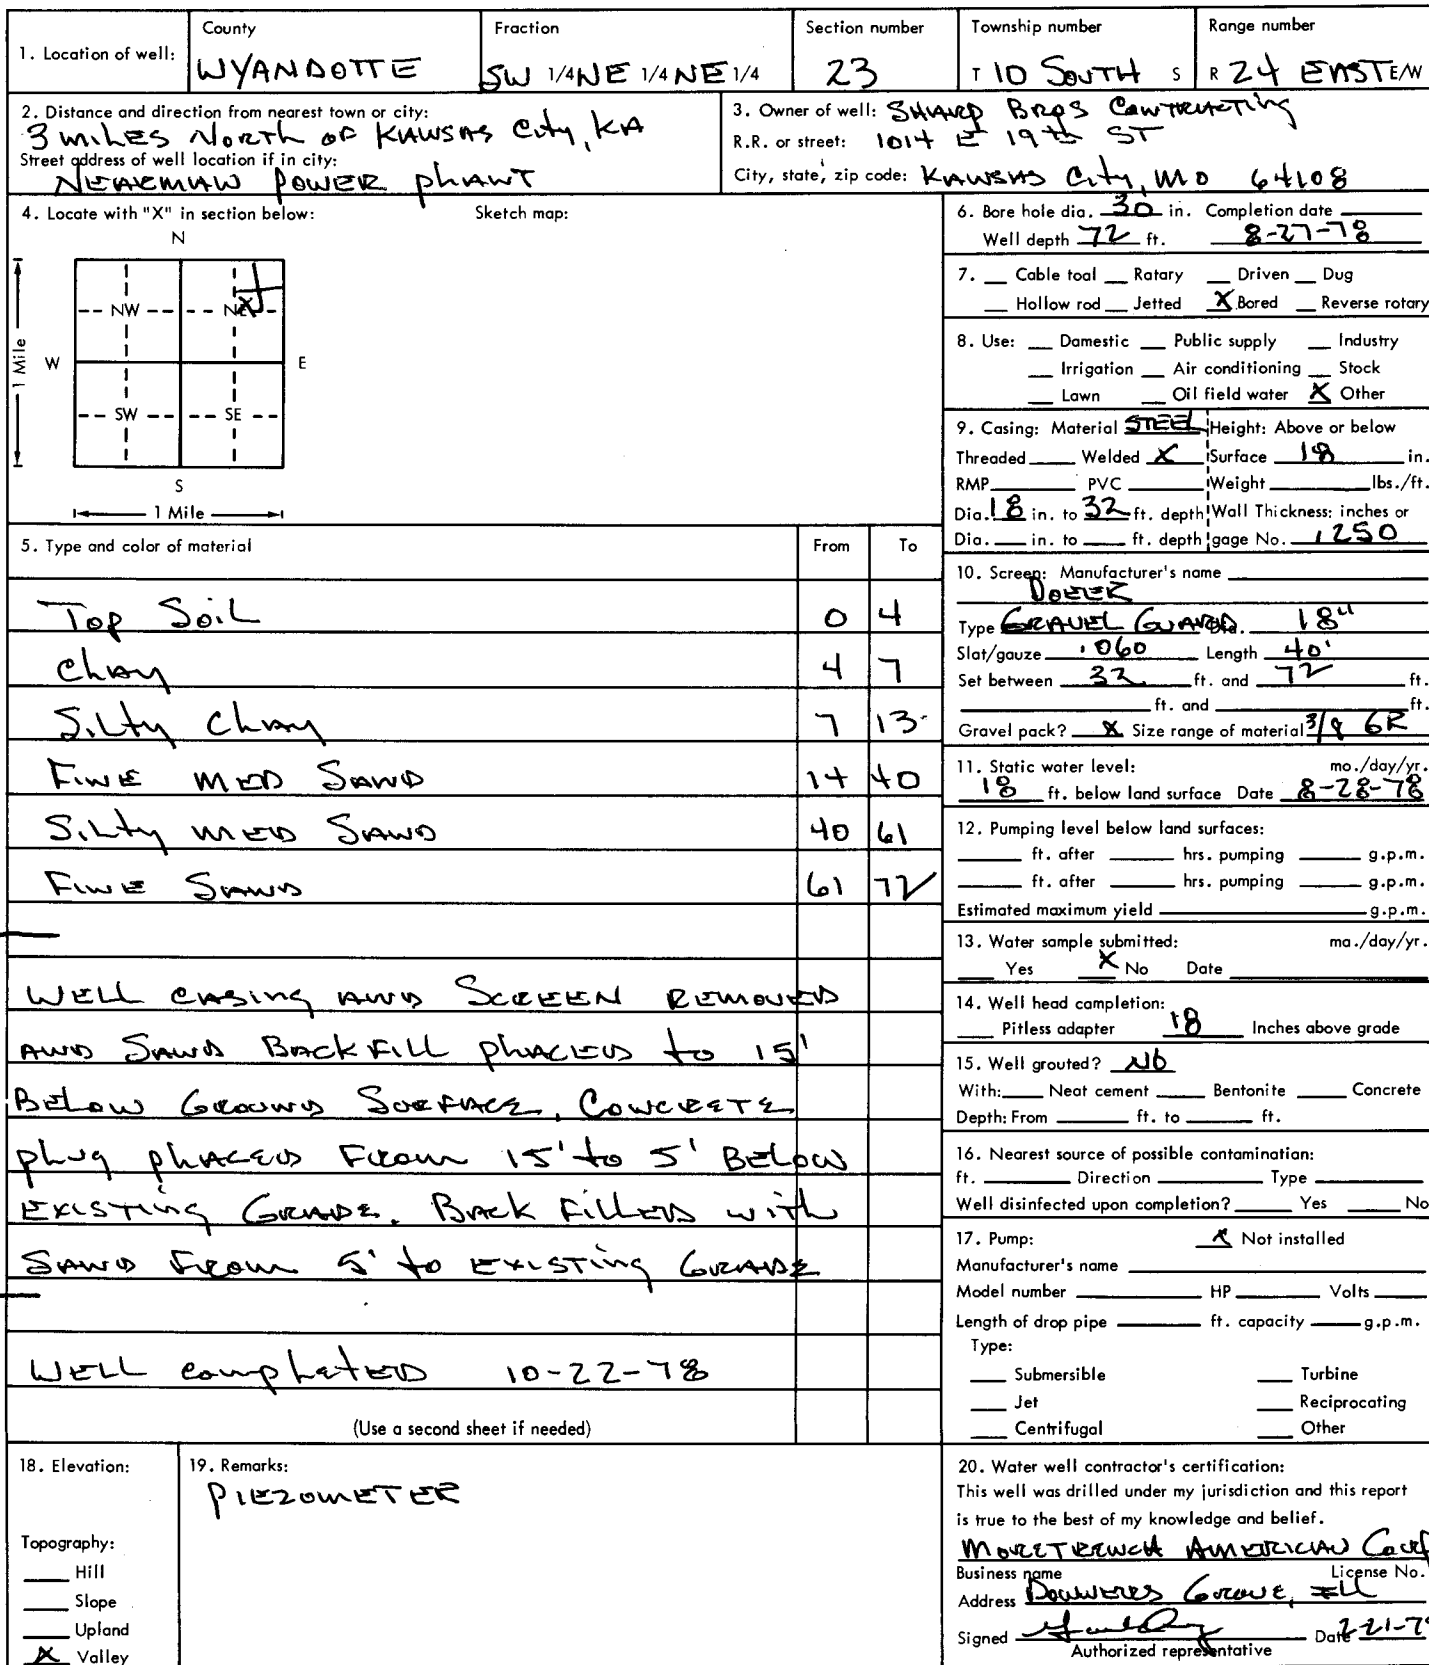 County Fraction Section number Township number Range number
1. Location of well: WYANDOTTE SW 1/4 NE 1/4 NE 1/4 23 T 10 SOUTH S R 24 EAST E/W
2. Distance and direction from nearest town or city:
3 miles North of KANSAS City, KA
Street address of well location if in city:
NEARMAN POWER PLANT
3. Owner of well: SHARP BROS CONTRACTING
R.R. or street: 1014 E 19th ST
City, state, zip code: KANSAS City, MO 64108
4. Locate with "X" in section below: Sketch map:
N
NW NE
W E
1 Mile
SW SE
S
1 Mile
X
5. Type and color of material From To
Top Soil 0 4
Clay 4 7
Silty Clay 7 13
FINE MED SAND 14 40
Silty MED SAND 40 61
FINE SAND 61 72
WELL CASING AND SCREEN REMOVED
AND SAND BACKFILL PLACED to 15'
BELOW GROUND SURFACE, CONCRETE
plug PLACED FROM 15' to 5' BELOW
EXISTING GRADE. BACK FILLED with
SAND FROM 5' to EXISTING GRADE
WELL completed 10-22-78
(Use a second sheet if needed)
6. Bore hole dia. 30 in. Completion date
Well depth 72 ft. 8-27-78
7. Cable tool Rotary Driven Dug
Hollow rod Jetted X Bored Reverse rotary
8. Use: Domestic Public supply Industry
Irrigation Air conditioning Stock
Lawn Oil field water X Other
9. Casing: Material STEEL Height: Above or below
Threaded Welded X Surface 18 in.
RMP PVC Weight lbs./ft.
Dia. 18 in. to 32 ft. depth Wall Thickness: inches or
Dia. in. to ft. depth gage No. .250
10. Screen: Manufacturer's name
DOERR
Type GRAVEL GUARD Dia. 18"
Slot/gauze .060 Length 40'
Set between 32 ft. and 72 ft.
ft. and ft.
Gravel pack? X Size range of material 3/8 GR
11. Static water level: mo./day/yr.
18 ft. below land surface Date 8-28-78
12. Pumping level below land surfaces:
ft. after hrs. pumping g.p.m.
ft. after hrs. pumping g.p.m.
Estimated maximum yield g.p.m.
13. Water sample submitted: mo./day/yr.
Yes X No Date
14. Well head completion:
Pitless adapter 18 Inches above grade
15. Well grouted? NO
With: Neat cement Bentonite Concrete
Depth: From ft. to ft.
16. Nearest source of possible contamination:
ft. Direction Type
Well disinfected upon completion? Yes No
17. Pump: X Not installed
Manufacturer's name
Model number HP Volts
Length of drop pipe ft. capacity g.p.m.
Type:
Submersible Turbine
Jet Reciprocating
Centrifugal Other
18. Elevation:
Topography:
Hill
Slope
Upland
X Valley
19. Remarks:
PIEZOMETER
20. Water well contractor's certification:
This well was drilled under my jurisdiction and this report
is true to the best of my knowledge and belief.
MORETRENCH AMERICAN Corp
Business name License No.
Address DOWNERS GROVE, ILL
Signed Date 2-21-7
Authorized representative